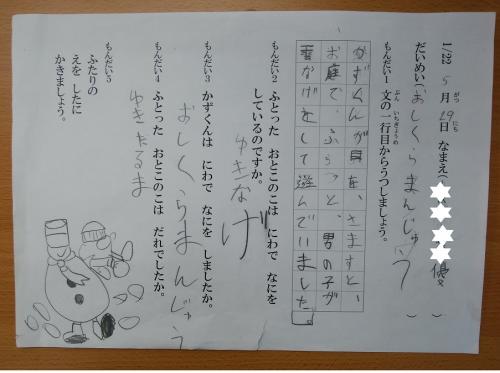 1/22 5月29日 なまえ( 優)
だいめい(おしくらまんじゅう)
もんだい1 文の一行目からうつしましょう。
かずくんが目を、さますと、
お庭で、男の子が
雪なげをして遊んでいました。
もんだい2 ふとった おとこのこは にわで なにを
しているのですか。
ゆきなげ
もんだい3 かずくんは にわで なにを しましたか。
おしくらまんじゅう
もんだい4 ふとった おとこのこは だれでしたか。
ゆきだるま
もんだい5
ふたりの
えを したに
かきましょう。